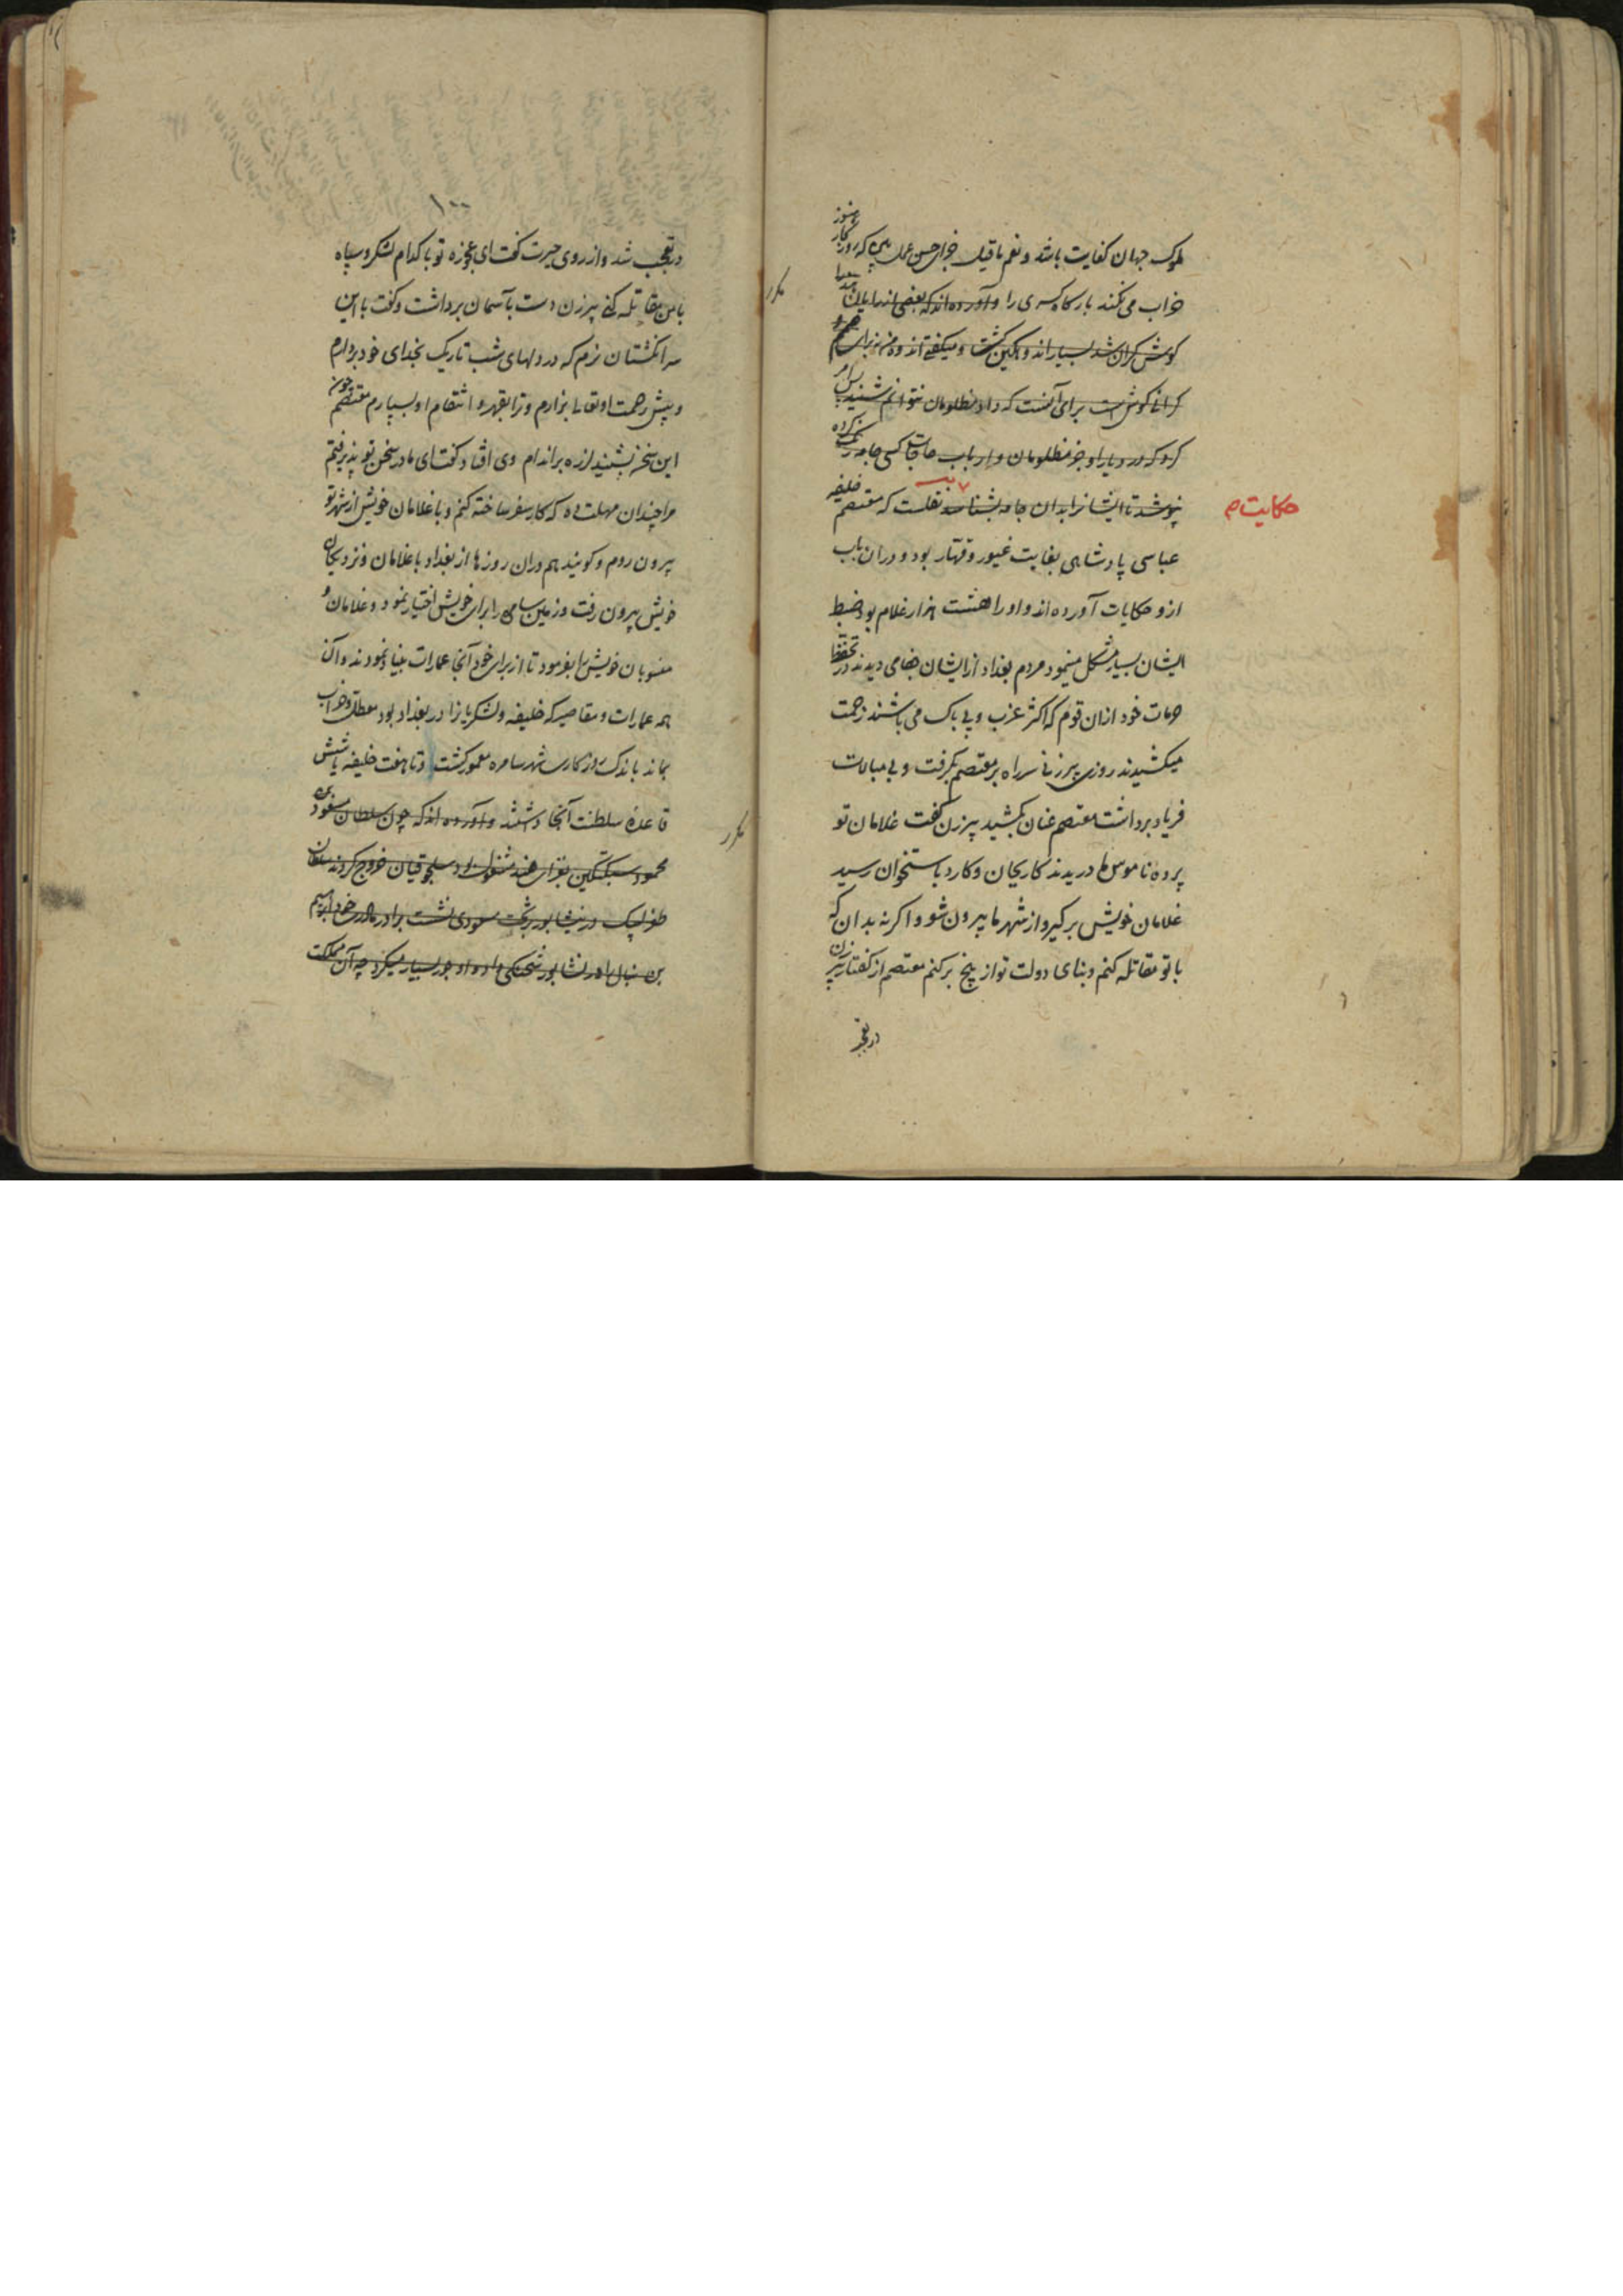 ملوک جهان کفایت باشد و نعم ما قیل جزای حسن عمل بین که روزگار هنوز
خراب می نکند بارگاه کسری را و آورده اند که بعضی از رایان هند را
گوش گران شد بسیار اندوهگین گشت و میگفت اندوه من نه برای
گرانی گوش است برای آنست که داد مظلومان نتوانم شنید پس امر
کرد که در دیار او جز مظلومان و ارباب حاجات کسی جامه رنگ کرده
نپوشد تا ایشانرا بدان جامه بشناسد نقلست که معتصم خلیفه
حکایت
عباسی پادشاهی بغایت غیور و قهار بود و دران باب
ازو حکایات آورده اند و او را هشت هزار غلام بود ضبط
ایشان بسیار مشکل مینمود مردم بغداد از ایشان جفا می دیدند در تحفظ
حرمات خود ازان قوم که اکثر عزب و بی باک می باشند زحمت
میکشیدند روزی پیرزنی سر راه بر معتصم بگرفت و بی مبالات
فریاد برداشت معتصم عنان بکشید پیرزن گفت غلامان تو
پرده ناموس ما دریدند کار بجان و کارد باستخوان رسید
غلامان خویش برگیر و از شهر ما بیرون شو و اگر نه بدان که
با تو مقاتله کنم و بنای دولت تو از بیخ برکنم معتصم از گفتار پیرزن
در تعجب
مکرر
۱۰۰
در تعجب شد و از روی حیرت گفت ای عجوزه تو با کدام لشکر و سپاه
با من مقاتله کنی پیرزن دست بآسمان برداشت و گفت با این
سر انگشتان نرم که در دلهای شب تاریک بخدای خود بردارم
و پیش رحمت او تعالی بزارم و ترا بقهر و انتقام او بسپارم معتصم چون
این سخن بشنید لرزه بر اندام وی افتاد گفت ای مادر سخن تو پذیرفتم
مرا چندان مهلت ده که کار سفر ساخته کنم و با غلامان خویش از شهر تو
بیرون روم و گویند هم دران روزها از بغداد با غلامان و نزدیکان
خویش بیرون رفت و زمین سامره را برای خویش اختیار نمود و غلامان و
منسوبان خویش را بفرمود تا از برای خود آنجا عمارات بنیاد نمودند و آن
همه عمارات و مقاصیر که خلیفه و لشکریانرا در بغداد بود معطل و خراب
بماند باندک روزگاری شهر سامره معمور گشت و تا هفت خلیفه یا شش
قاعده سلطنت آنجا داشتند و آورده اند که چون سلطان مسعود بن
محمود سبکتگین بغزای هند مشغول بود سلجوقیان خروج کردند سلطان
طغرلبیک در نیشابور بر تخت مسعودی نشست برادر مادری خود ابرهیم
بن نیال را در نشابور شحنگی داد و او جور بسیار میکرد چه آن مملکت
مکرر